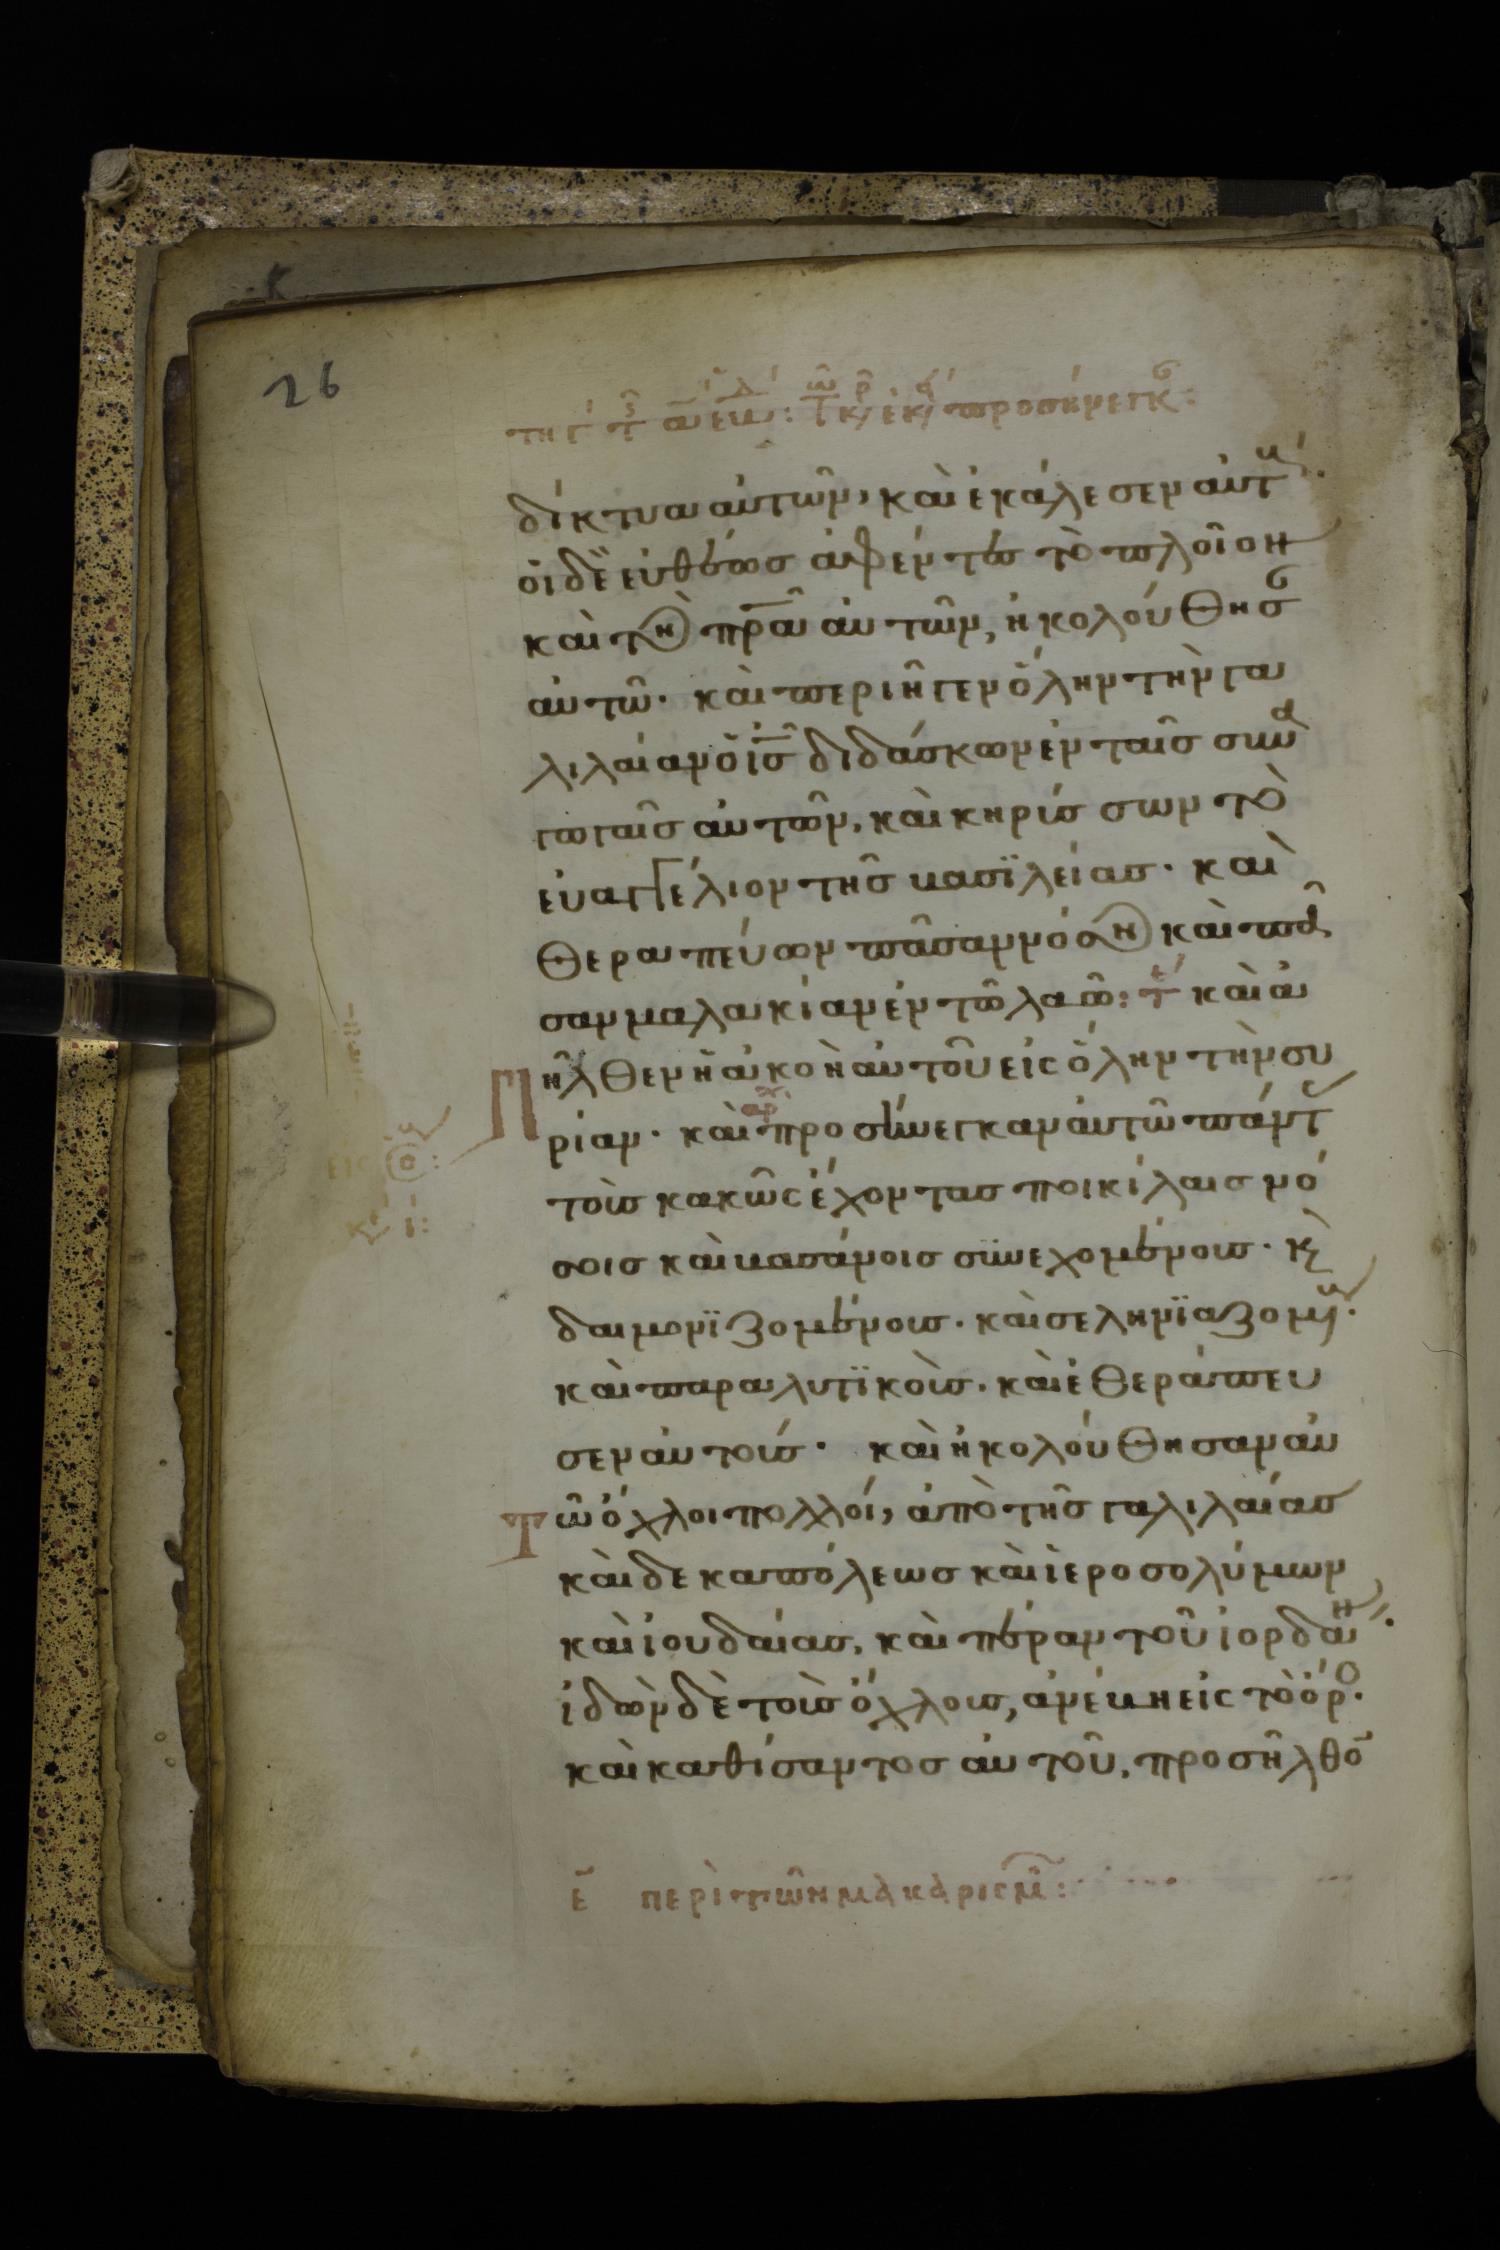 26
δίκτυα αὐτῶν, καὶ ἐκάλεσεν αὐτ
οἱ δὲ εὐθέως ἀφέντες τὸ πλοῖον
καὶ τὸν πρ̅α̅ αὐτῶν, ἠκολούθησ
αὐτῶ. καὶ περιῆγεν ὅλην τὴν γα
λιλαίαν ὁ ι̅σ̅ διδάσκων ἐν ταῖς συνα
γωγαῖς αὐτῶν, καὶ κηρύσσων τὸ
εὐαγγέλιον τῆς βασϊλείας. καὶ
θεραπεύων πᾶσαν νόσον καὶ πᾶ
σαν μαλακίαν ἐν τῶ λαῶ: τ καὶ ἀ
πῆλθεν ἡ ἀκοὴ αὐτοῦ εἰς ὅλην τὴν συ
ρίαν. καὶ προσήνεγκαν αὐτῶ πάντ
τοὺς κακῶς ἔχοντας ποικίλαις νό
σοις καὶ βασάνοις συνεχομένους. κ
δαιμονϊζομένους. καὶ σεληνϊαζομ
καὶ παραλυτϊκοὺς. καὶ ἐθεράπευ
σεν αὐτούς. καὶ ἠκολούθησαν αὐ
τῶ ὄχλοι πολλοί, ἀπὸ τῆς γαλιλαίας
καὶ δεκαπόλεως καὶ ἱεροσολύμων
καὶ ἰουδαίας, καὶ πέραν τοῦ ἰορδαν
ἰδὼν δὲ τοὺς ὄχλους, ἀνέβη εἰς τὸ ὄρο.
καὶ καθίσαντος αὐτοῦ, προσῆλθο
ε̅ περὶ τῶν μακαρισμ: